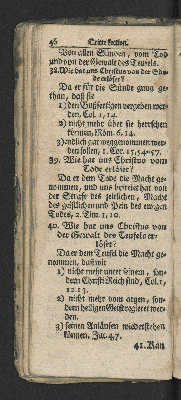 46 Dritte Lection.
Von allen Sünden, vom Tod
und von der Gewalt des Teufels.
38. Wie hat uns Christus von der Sün-
de erlöset?
Da er für die Sünde gnug ge-
than, daß sie
1) den Bußfertigen vergeben wer-
den, Col. 1, 14.
2) nicht mehr über sie herrschen
können, Röm. 6, 14.
3) endlich gar weggenommen wer-
den sollen, 1. Cor. 15, 54-57.
39. Wie hat uns Christus vom
Tode erlöset?
Da er dem Tode die Macht ge-
nommen, und uns befreiet hat von
der Strafe des zeitlichen, Macht
des geistlichen und Pein des ewigen
Todes, 2. Tim. 1, 10.
40. Wie hat uns Christus von
der Gewalt des Teufels er-
löset?
Da er dem Teufel die Macht ge-
nommen, daß wir
1) nicht mehr unter seinem, son-
dern Christi Reich sind, Col. 1,
12. 13.
2) nicht mehr vom argen, son-
dern heiligen Geist regieret wer-
den.
3) seinen Anläufen wiederstehen
können, Jac. 4, 7.
41. Kan